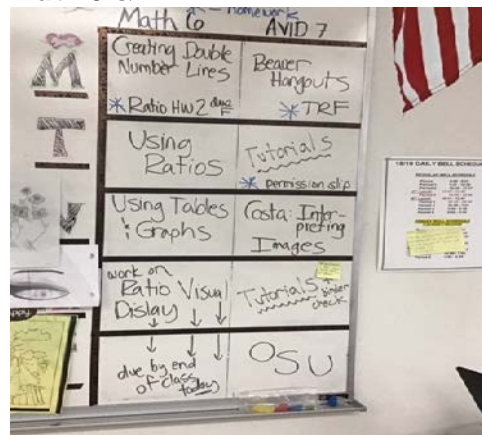 Math 6
* = homework
AVID 7
M
Creating Double
Number Lines
* Ratio HW 2 due
F
Beaver
Hangouts
* TRF
T
Using
Ratios
Tutorials
* permission slip
Using Tables
& Graphs
Costa: Inter-
preting
Images
work on
Ratio Visual
Dislay
Tutorials +
binder
check
due by end
of class
today
OSU
18/19 DAILY BELL SCHEDU